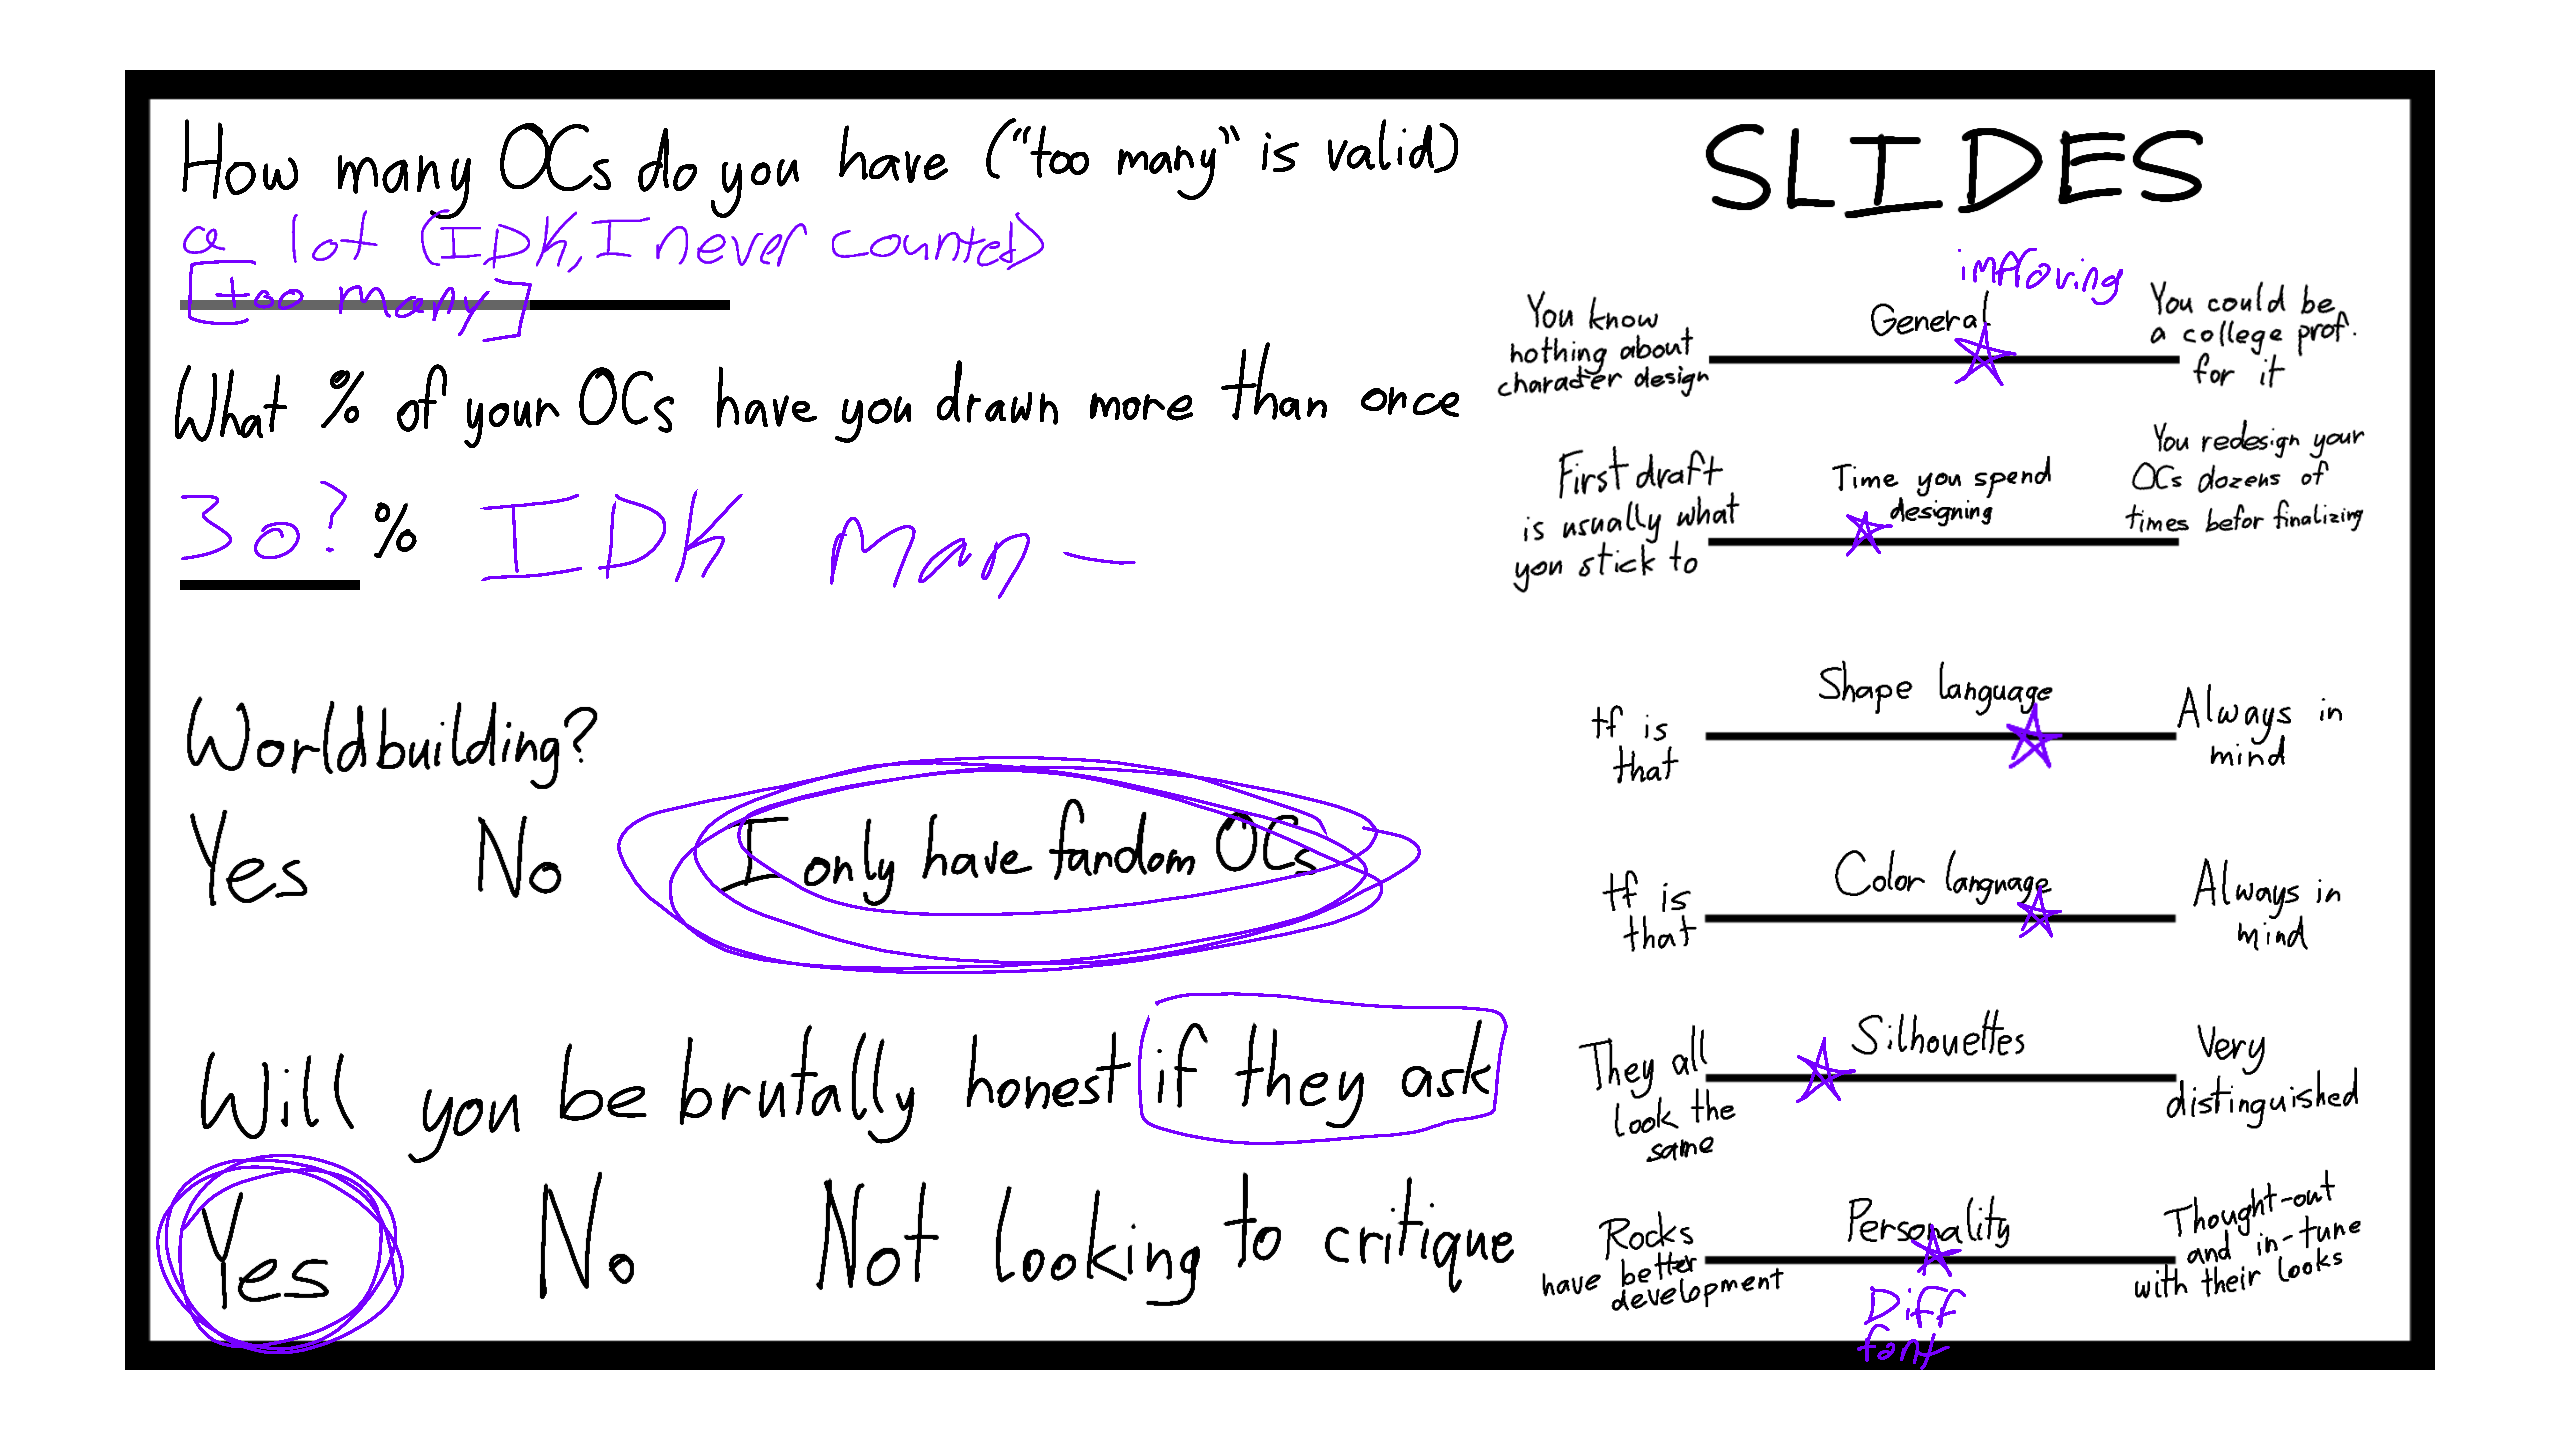 How many OCs do you have ("too many" is valid)
a lot (IDK, I never counted)
[too many]
What % of your OCs have you drawn more than once
30? % IDK man—
Worldbuilding?
Yes No I only have fandom OCs
Will you be brutally honest if they ask
Yes No Not looking to critique
SLIDES
improving
You know
nothing about
character design
General
You could be
a college prof.
for it
First draft
is usually what
you stick to
Time you spend
designing
You redesign your
OCs dozens of
times befor finalizing
tf is
that
Shape language
Always in
mind
tf is
that
Color language
Always in
mind
They all
look the
same
Silhouettes
Very
distinguished
Rocks
have better
development
Personality
Thought-out
and in-tune
with their looks
Diff
font